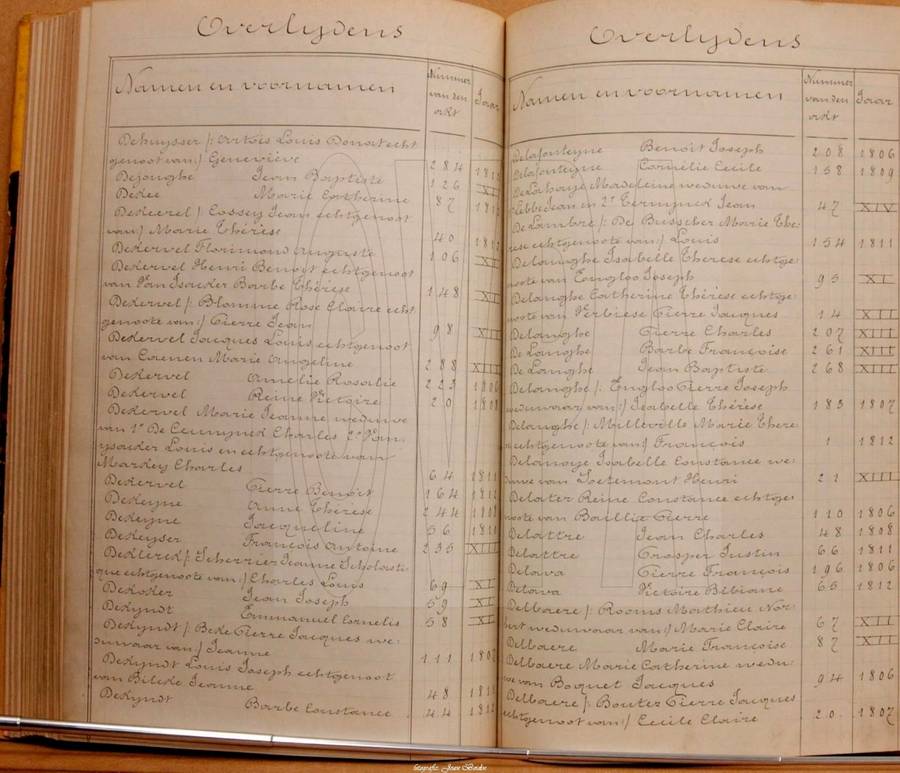 Overlijdens
Namen en voornamen
Nummer van den akt
Jaar
Dehuysser /: Artois Louis Donat echt
genoot van :/ Geneviève 284
Dejonghe Jean Baptiste 126
Dekee Marie Catherine 87
Dekeerel /: Cossey Jean echtgenoot
van :/ Marie Thérèse 40
Dekervel Florimond Auguste 106
Dekervel Henri Benoit echtgenoot
van Van Isacker Barbe Thérèse 148
Dekervel /: Blomme Rose Claire echt
genoote van :/ Pierre Jean 98 XIII
Dekervel Jacques Louis echtgenoot
van Coenen Marie Angeline 288 XIII
Dekervel Amelie Rosalie 223 1806
Dekervel Reine Victoire 20 1808
Dekervel Marie Jeanne weduwe
van 1° De Ceuninck Charles 2° Van
ysacker Louis en echtgenoote van
Markey Charles 64 1811
Dekervel Pierre Benoit 164 1812
Dekeyne Anne Thérèse 244
Dekeyne Jacqueline 56 1811
Dekeyser Francois Antoine 235 XIII
Deklerck /: Scherrier Jeanne Scholasti
que echtgenoote van :/ Charles Louis 69
Dekoker Jean Joseph 59
Dekyndt Emmanuel Cornelis 58
Dekyndt /: Beke Pierre Jacques we-
duwaar van :/ Jeanne 111 1807
Dekyndt Louis Joseph echtgenoot
van Bilcke Jeanne 48
Dekyndt Barbe Constance 44 1812
Overlijdens
Namen en voornamen
Nummer van den akt
Jaar
Delafonteyne Benoit Joseph 208 1806
Delafonteyne Cornélie Cecile 158 1809
De Lahaye Madeleine weduwe van
Jean en 2° Jean 47 XIV
De Lambre /: De Busscher Marie Thé-
rèse echtgenoote van :/ Louis 154 1811
Delanghe Isabelle Therese echtge-
noote van Joseph 95 XI
Delanghe Catherine Thérèse echtge-
noote van Verbiese Pierre Jacques 14 XII
Delanghe Pierre Charles 207 XIII
De Langhe Barbe Françoise 261 XIII
De Langhe Jean Baptiste 268 XIII
Delanghe /: Pierre Joseph
weduwaar van :/ Isabelle Thérèse 185 1807
Delanghe /: Milleville Marie There
se echtgenoote van :/ François 1 1812
Isabelle Constance we-
duwe van Soetemont Henri 21 XIII
Delater Reine Constance echtge-
noote van Baillie Pierre 110 1806
Delattre Jean Charles 48 1808
Delattre Prosper Justin 66 1811
Delava Pierre François 196 1806
Delava Victoire Bibiane 65 1812
Delbaere /: Rooms Mathieu Nor-
bert weduwaar van :/ Marie Claire 67 XII
Delbaere Marie Françoise 87 XII
Delbaere Marie Catherine wedu-
we van Boquet Jacques 94 1806
Delbaere /: Bouter Pierre Jacques
echtgenoot van :/ Cecile Claire 20 1807
fotografie: Jean Bordin